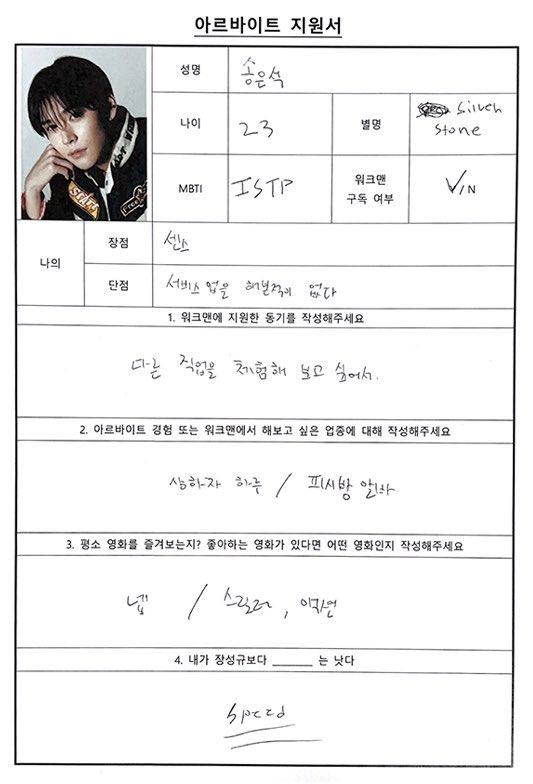 아르바이트 지원서
성명
송은석
나이
23
별명
Silver
Stone
MBTI
ISTP
워크맨
구독 여부
√/N
나의
장점
센스
단점
서비스 업을 해본적이 없다
1. 워크맨에 지원한 동기를 작성해주세요
다른 직업을 체험해 보고 싶어서.
2. 아르바이트 경험 또는 워크맨에서 해보고 싶은 업종에 대해 작성해주세요
상하차 하루 / 피시방 알바
3. 평소 영화를 즐겨보는지? 좋아하는 영화가 있다면 어떤 영화인지 작성해주세요
넵 / 스릴러,
4. 내가 장성규보다 ______ 는 낫다
Speed